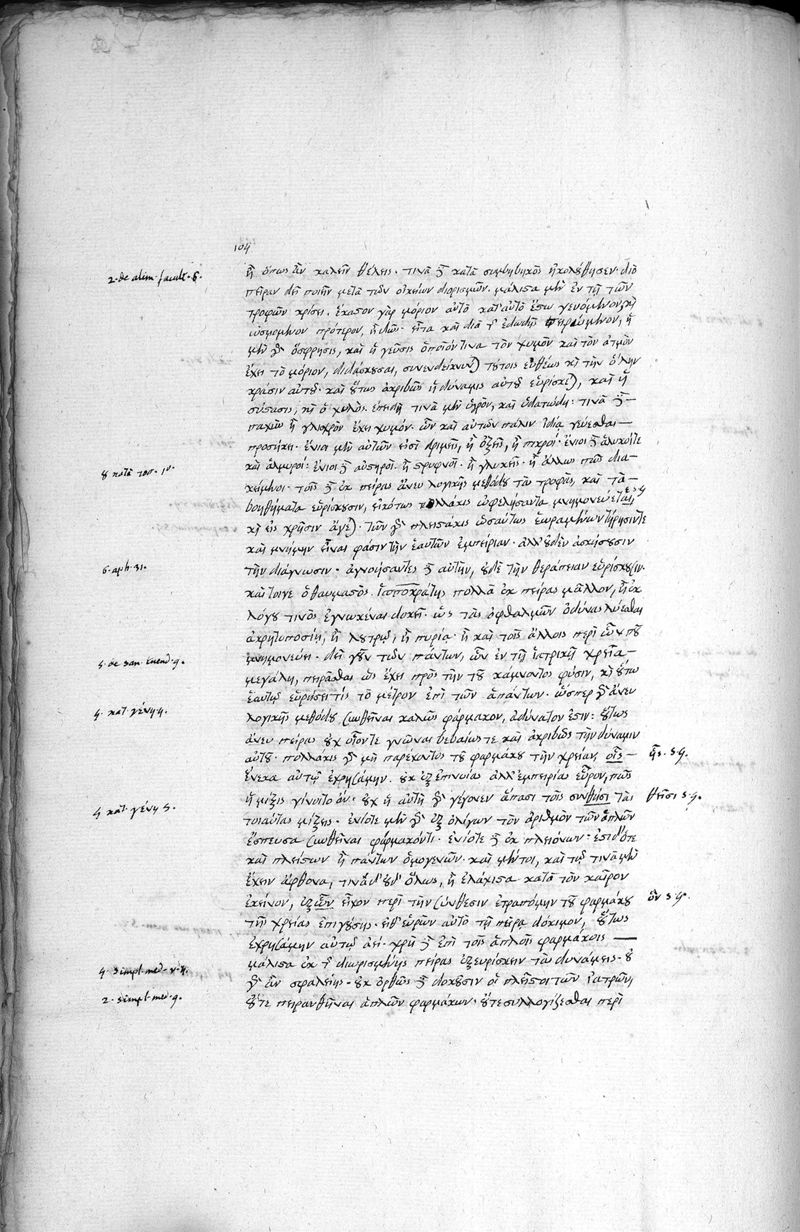 104
2. de alim. facult. 8.
ἢ ὅπως ἂν καλεῖν θέλεις. τινὰ δὲ κατὰ συμβεβηκὸς ἠκολούθησεν. διὸ
πεῖραν δεῖ ποιεῖν μετὰ τῶν οἰκείων διορισμῶν. μάλιστα μὲν ἐν τῇ τῶν
τροφῶν κρίσει. ἕκαστον γὰρ μόριον αὐτὸ καθ' αὑτὸ ἔστω γευόμενον, καὶ
ὀσμώμενον πρότερον, εἶτα καὶ διὰ τῆς ἐδωδῆς πειρώμενον, ἡ
μὲν γὰρ ὄσφρησις, καὶ ἡ γεῦσις ὁποῖόν τινα τὸν χυμὸν καὶ τὸν ἀτμὸν
ἔχει τὸ μόριον, διδάσκουσαι, συνενδείκνυνται τούτοις εὐθέως καὶ τὴν ὅλην
κρᾶσιν αὐτοῦ. καὶ οὕτως ἀκριβῶς ἡ δύναμις αὐτοῦ εὑρίσκεται, καὶ ἡ
σύστασις, καὶ ὁ χυλός. ἐπειδὴ τινὰ μὲν ὑγρὸν, καὶ ὑδατώδη. τινὰ δὲ
παχὺν ἢ γλισχρὸν ἔχει χυμόν. ὧν καὶ αὐτῶν πάλιν ἰδίᾳ γεύεσθαι
προσήκει. ἔνιοι μὲν αὐτῶν εἰσὶ δριμεῖς, ἢ ὀξεῖς, ἢ πικροί. ἔνιοι δὲ ἁλυκοί τε
καὶ ἁλμυροί. ἔνιοι δὲ αὐστηροὶ. ἢ στρυφνοὶ. ἢ γλυκεῖς. ἢ ἄλλως πως δια
8 κατὰ τοπ. 1.
κείμενοι. τοῖς δὲ ἐκ πείρας ἄνευ λογικῆς μεθόδου τὰς τροφὰς, καὶ τὰ
βοηθήματα εὑρίσκουσιν, εἰκότως πολλάκις ὠφελήσαντα μνημονεύεται,
καὶ εἰς χρῆσιν ἄγεται. τῶν γὰρ πλειστάκις ὡσαύτως ἑωραμένων τήρησίν τε
καὶ μνήμην εἶναι φάσιν τὴν ἑαυτῶν ἐμπειρίαν. ἀλλ' οὐδὲν ἀσκήσουσιν
6. aph. 31.
τὴν διάγνωσιν. ἀγνοήσαντες δὲ αὐτὴν, οὐδὲ τὴν θεράπειαν εὑρίσκουσιν.
καί τοιγε ὁ θαυμαστὸς Ἱπποκράτης πολλὰ ἐκ πείρας μᾶλλον, ἢ ἐκ
λόγου τινὸς ἐγνωκέναι δοκεῖ. ὡς τὰς ὀφθαλμῶν ὀδύνας λύεσθαι
ἀκρητοποσίῃ, ἢ λουτρῷ, ἢ πυρίᾳ. ἢ καὶ τοῖς ἄλλοις περὶ ὧν που
5. de san. tuend. 9.
μνημονεύει. δεῖ γοῦν τῶν πάντων, ὧν ἐν τῇ ἰατρικῇ χρεία
μεγάλη, πειρᾶσθαι ὡς ἔχει πρὸς τὴν τοῦ κάμνοντος φύσιν, καὶ οὕτω
ἑαυτῷ εὑρήσει τίς τὸ μέτρον ἐπὶ τῶν ἁπάντων. ὥσπερ γὰρ ἄνευ
5. κατ. γένη 4.
λογικῆς μεθόδου συνθεῖναι καλῶς φάρμακον, ἀδύνατον ἐστιν: οὕτως
ἄνευ πείρας οὐχ οἷόν τε γνῶναι βεβαίως τε καὶ ἀκριβῶς τὴν δύναμιν
αὐτοῦ. πολλάκις γὰρ μὴ παρέχοντος τοῦ φαρμάκου τὴν χρείαν, οἷς
ἧς. 54.
ἕνεκα αὐτῷ ἐχρησάμην. οὐκ ἐξ ἐπινοίας ἀλλ' ἐμπειρίας εὗρον, πῶς
ἡ μίξις γίνοιτο ὄν. οὐχ ἡ αὐτὴ γὰρ γέγονεν ἅπασι τοῖς συνθεῖσι τὰς
θεῖσι 54.
5 κατ. γένη 5.
τοιαύτας μίξεις. ἐνίοτε μὲν γὰρ ἐξ ὀλίγων τὸν ἀριθμὸν τῶν ἁπλῶν
ἔσπευσα συνθεῖναι φάρμακόν τι. ἐνίοτε δὲ ἐκ πλειόνων. ἔστι δ' ὅτε
καὶ πλείστων ἢ πάντων ὁμογενῶν. καὶ μέντοι, καὶ τῷ τινὰ μὲν
ἔχειν ἄφθονα, τινὰ δ' οὐδ' ὅλως, ἢ ἐλάχιστα κατὰ τὸν καῖρον
ἐκεῖνον, ἐξ ὧν εἶχον περὶ τὴν σύνθεσιν ἐτραπόμην τοῦ φαρμάκου
ὃν 54.
τῆς χρείας ἐπιγούσης. εἶθ' εὑρὼν αὐτὸ τῇ πείρᾳ δόκιμον, οὕτως
ἐχρησάμην αὐτῷ ἀεί. χρὴ δὲ ἐπὶ τοῖς ἁπλοῖς φαρμάκοις
4. simpl. med.
μάλιστα ἐκ τῆς διωρισμένης πείρας ἐξευρίσκειν τὰς δυνάμεις. οὐ
2. simpl. med. 9.
γὰρ ἂν σφαλείης. οὐκ ὀρθῶς δὲ δοκοῦσιν οἱ πλεῖστοι τῶν ἰατρῶν,
οὔτε πειραθῆναι ἁπλῶν φαρμάκων. οὔτε συλλογίζεσθαι περὶ